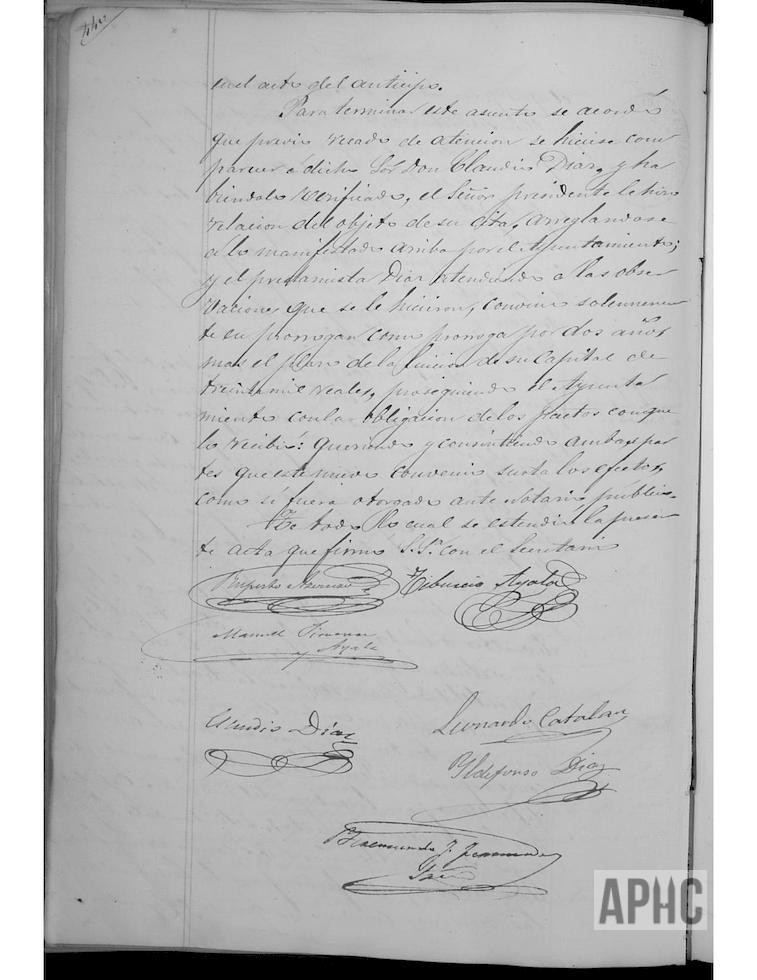 en el acto del anticipo.
Para terminar este asunto se acordó
que previo recado de atencion se hiciese com
parecer á dicho Sor Don Claudio Diaz, y ha
biendolo verificado, el Señor presidente le hizo
relacion del objeto de su cita, arreglandose
a lo manifestado arriba por el Ayuntamiento;
y el prestamista Diaz atendiendo a las obser
vaciones que se le hicieron, convino solennemen
te en prorrogar como prorroga por dos años
mas el plazo de la luicion de su capital de
treinta mil reales, prosiguiendo el Ayunta
miento con la obligacion de los pactos con que
lo recibió: Queriendo y consintiendo ambas par
tes que este nuevo convenio surta los efectos,
como si fuera otorgado ante notario público.
De todo lo cual se estendió la presen
te acta que firmó S.S. con el Secretario
Ruperto
Tiburcio Ayala
Manuel Jimenez
y Ayala
Claudio Díaz
Leonardo Catalan
Yldefonso Diaz
Raimundo J.
APHC